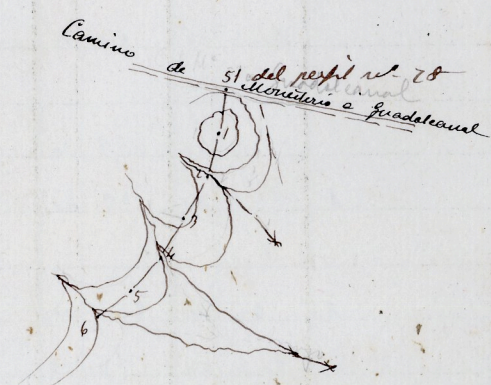 Camino de Monesterio a Guadalcanal
51 del perfil nº 28
1
2
3
4
5
6